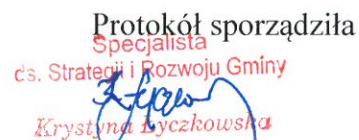 Protokół sporządziła
Specjalista
ds. Strategii i Rozwoju Gminy
Krystyna Łyczkowska